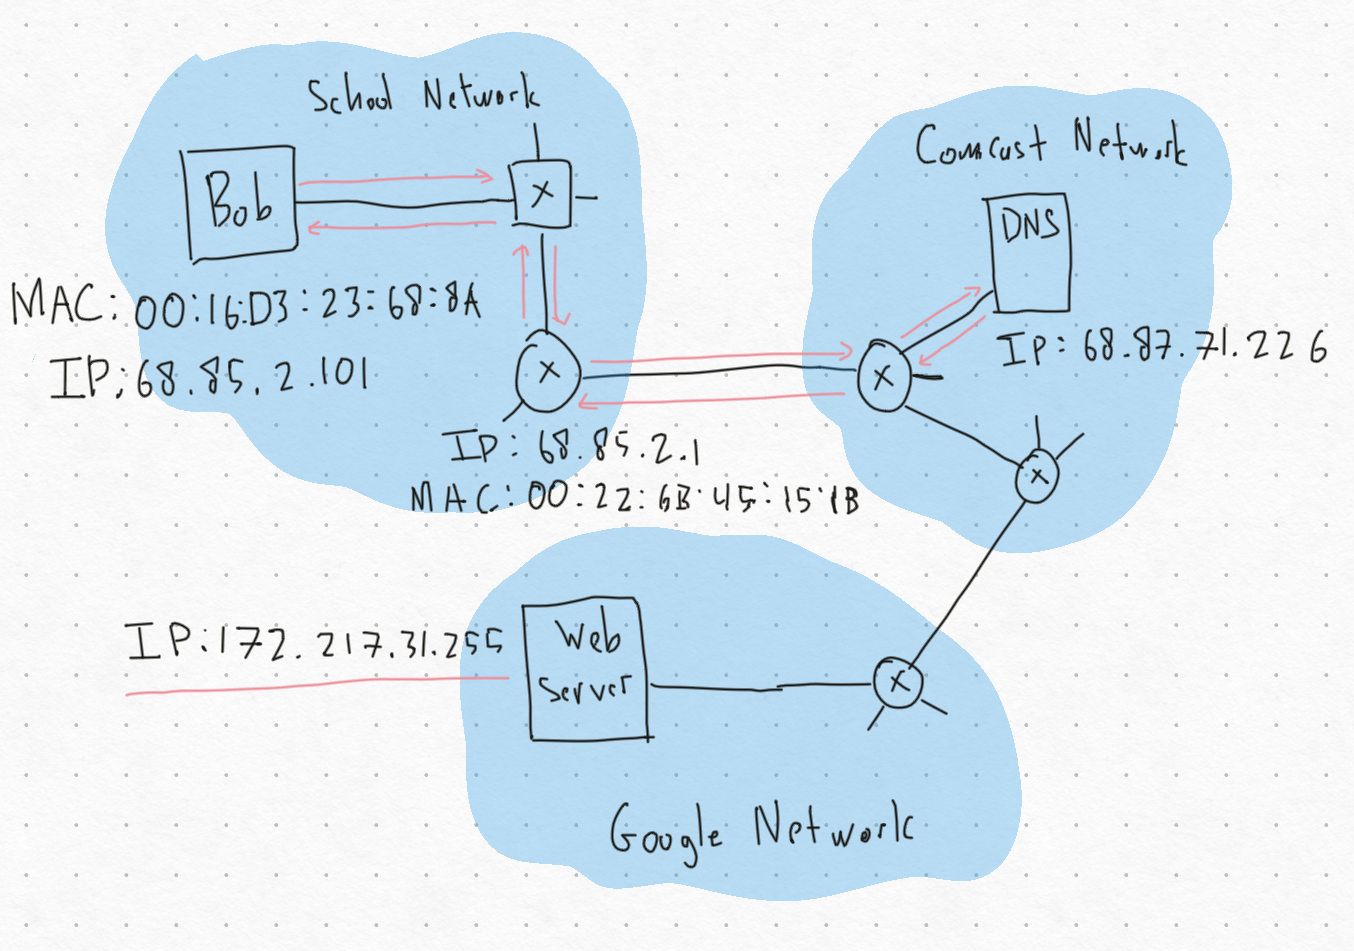 School Network
Bob
X
MAC: 00:16:D3:23:68:8A
IP: 68.85.2.101
X
IP: 68.85.2.1
MAC: 00:22:6B:45:15:1B
Comcast Network
DNS
IP: 68.87.71.226
X
X
IP:172.217.31.255
Web
Server
X
Google Network